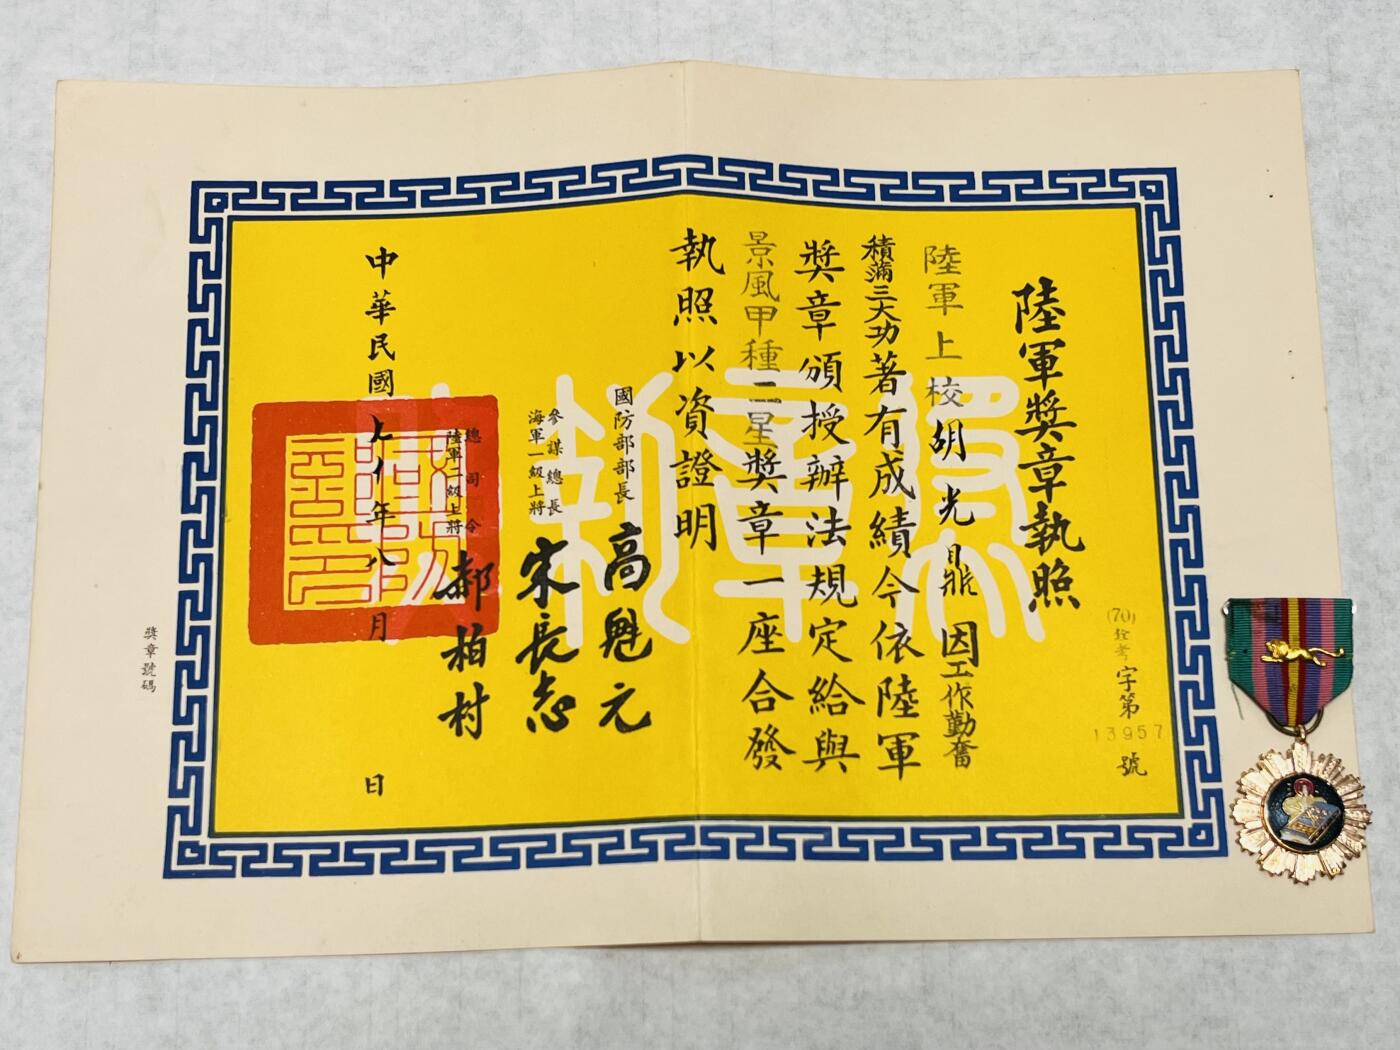 陸軍獎章執照
(70)銓考字第13957號
陸軍上校胡光鼎因工作勤奮
積滿三大功著有成績今依陸軍
獎章頒授辦法規定給與
景風甲種二星獎章一座合發
執照以資證明
國防部部長 高魁元
參謀總長
海軍一級上將 宋長志
總司令
陸軍二級上將 郝柏村
中華民國七十年八月 日
獎章號碼